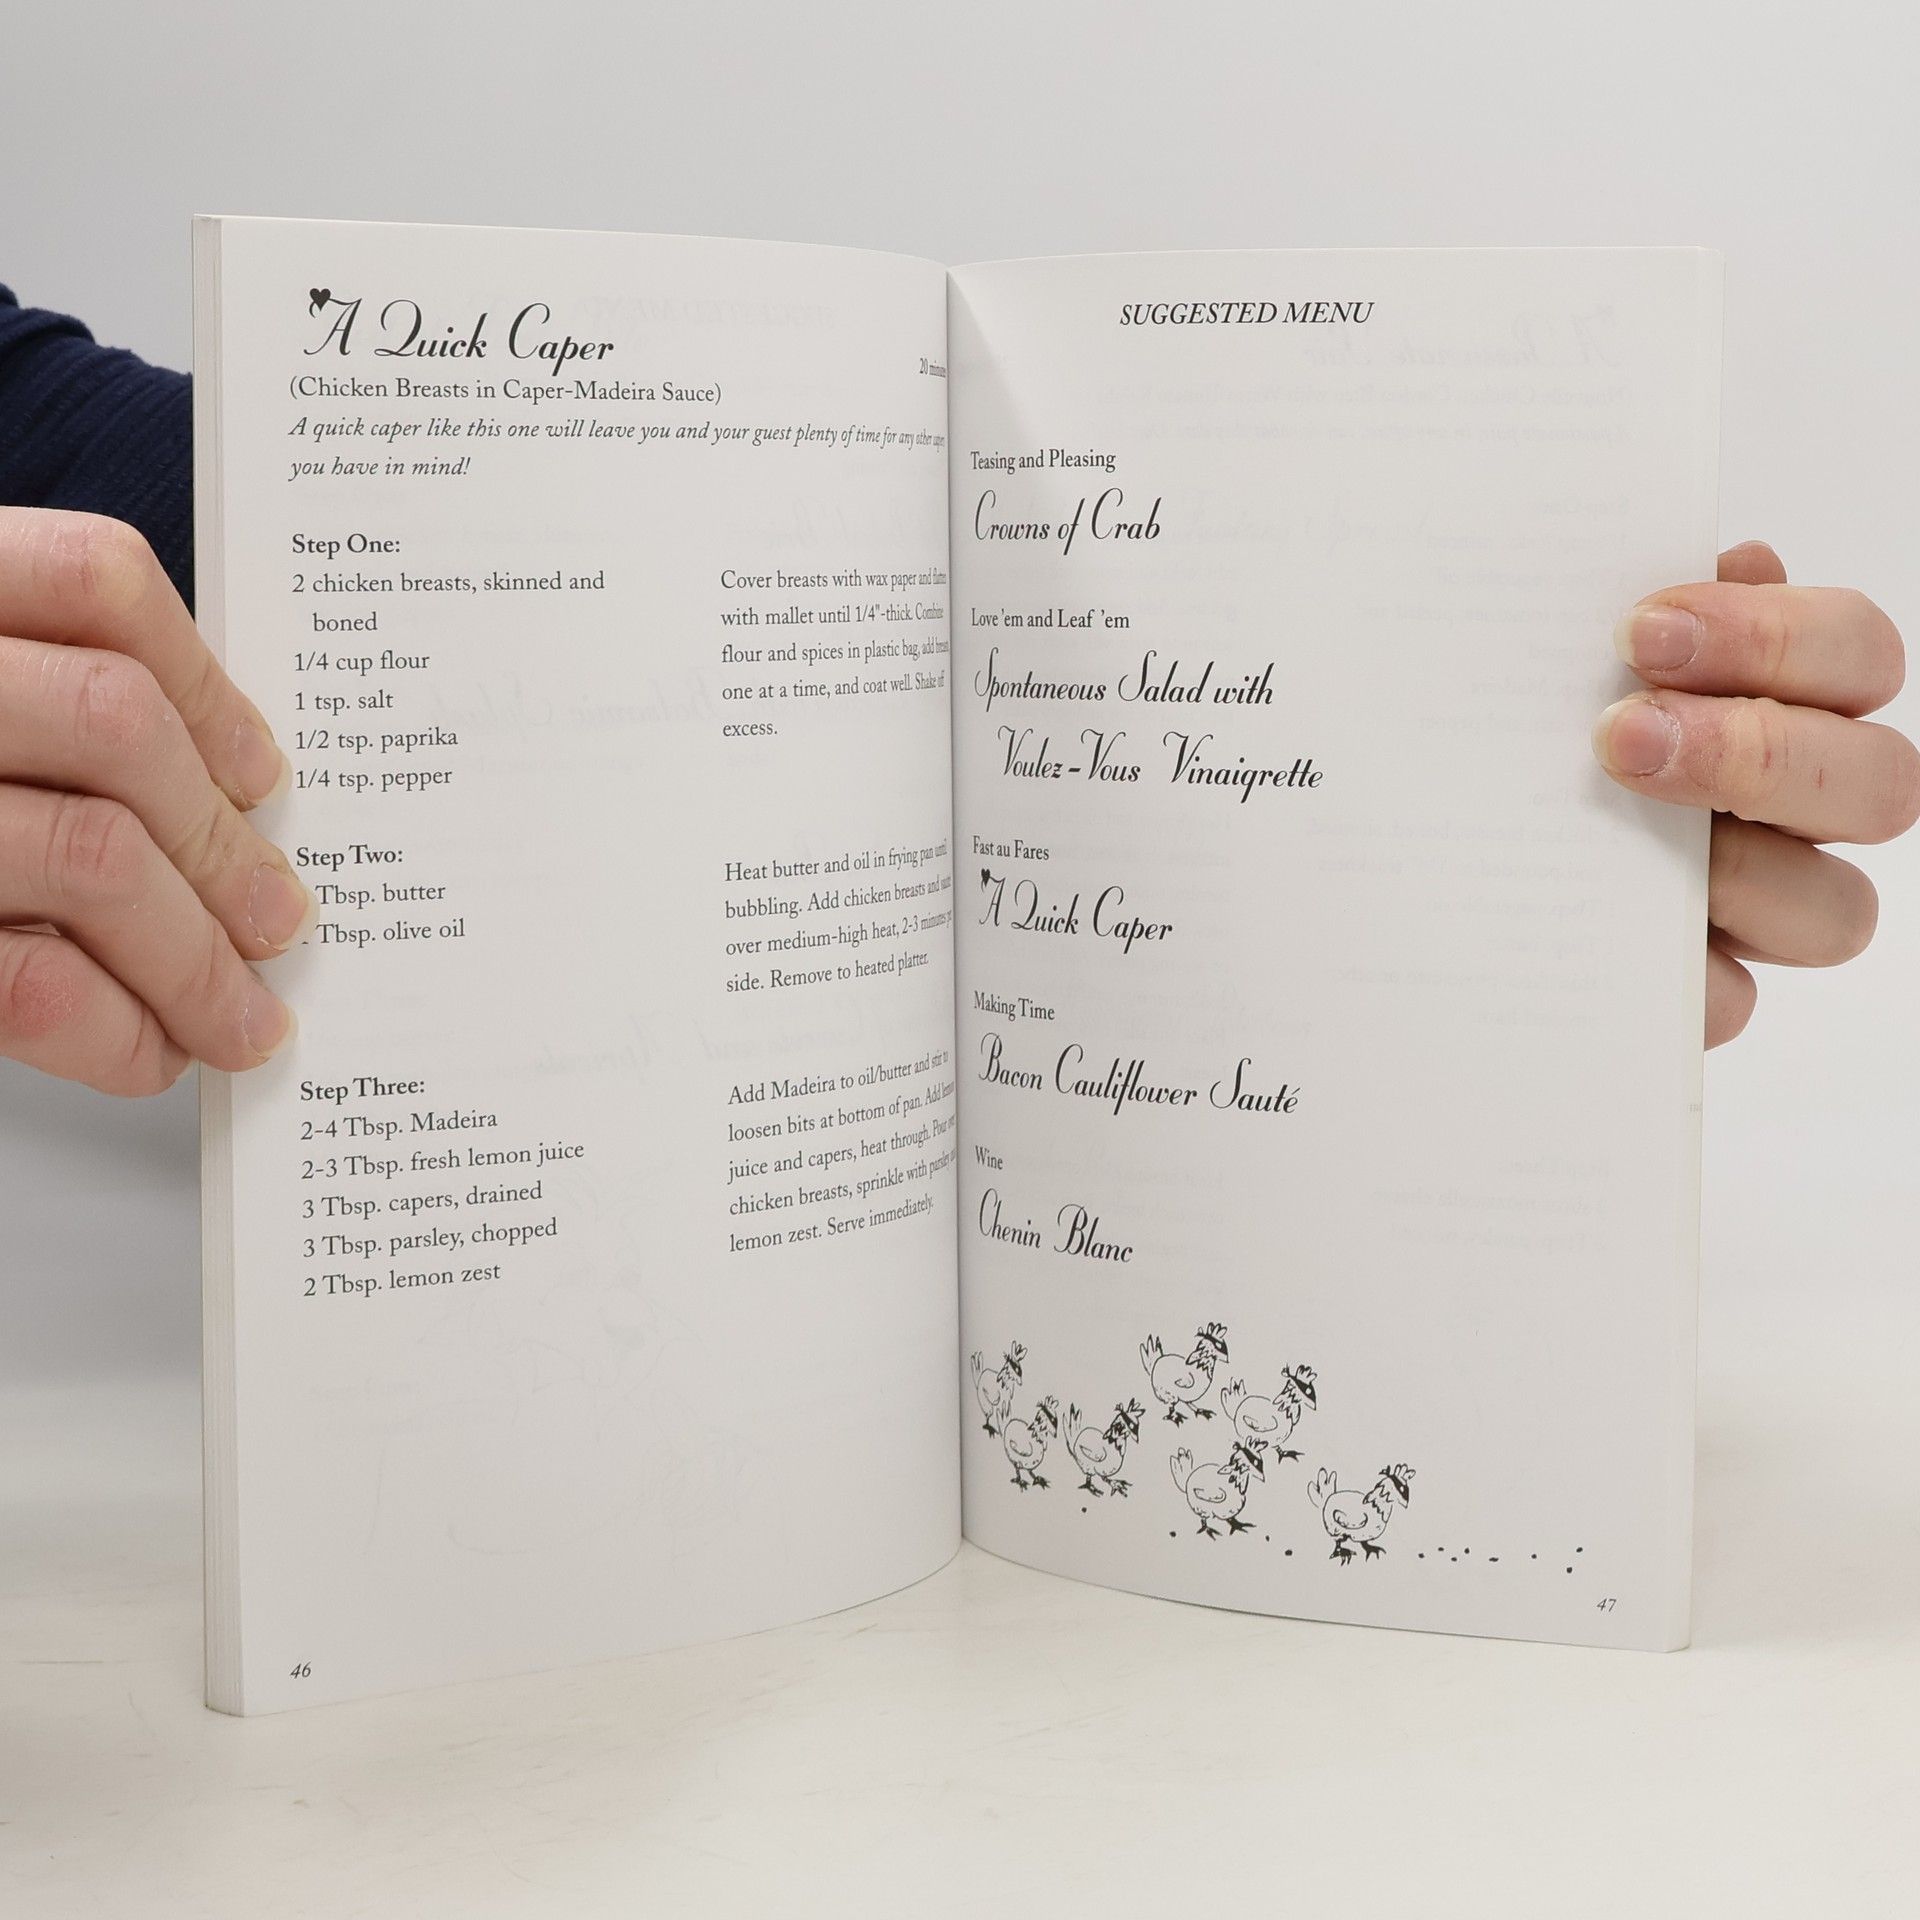 A Quick Caper
20 minutes
(Chicken Breasts in Caper-Madeira Sauce)
A quick caper like this one will leave you and your guest plenty of time for any other caper
you have in mind!
Step One:
2 chicken breasts, skinned and
boned
1/4 cup flour
1 tsp. salt
1/2 tsp. paprika
1/4 tsp. pepper
Cover breasts with wax paper and flatten
with mallet until 1/4"-thick. Combine
flour and spices in plastic bag, add breasts
one at a time, and coat well. Shake off
excess.
Step Two:
Tbsp. butter
Tbsp. olive oil
Heat butter and oil in frying pan until
bubbling. Add chicken breasts and sauté
over medium-high heat, 2-3 minutes per
side. Remove to heated platter.
Step Three:
2-4 Tbsp. Madeira
2-3 Tbsp. fresh lemon juice
3 Tbsp. capers, drained
3 Tbsp. parsley, chopped
2 Tbsp. lemon zest
Add Madeira to oil/butter and stir to
loosen bits at bottom of pan. Add lemon
juice and capers, heat through. Pour over
chicken breasts, sprinkle with parsley and
lemon zest. Serve immediately.
46
SUGGESTED MENU
Teasing and Pleasing
Crowns of Crab
Love 'em and Leaf 'em
Spontaneous Salad with
Voulez-Vous Vinaigrette
Fast au Fares
A Quick Caper
Making Time
Bacon Cauliflower Sauté
Wine
Chenin Blanc
47